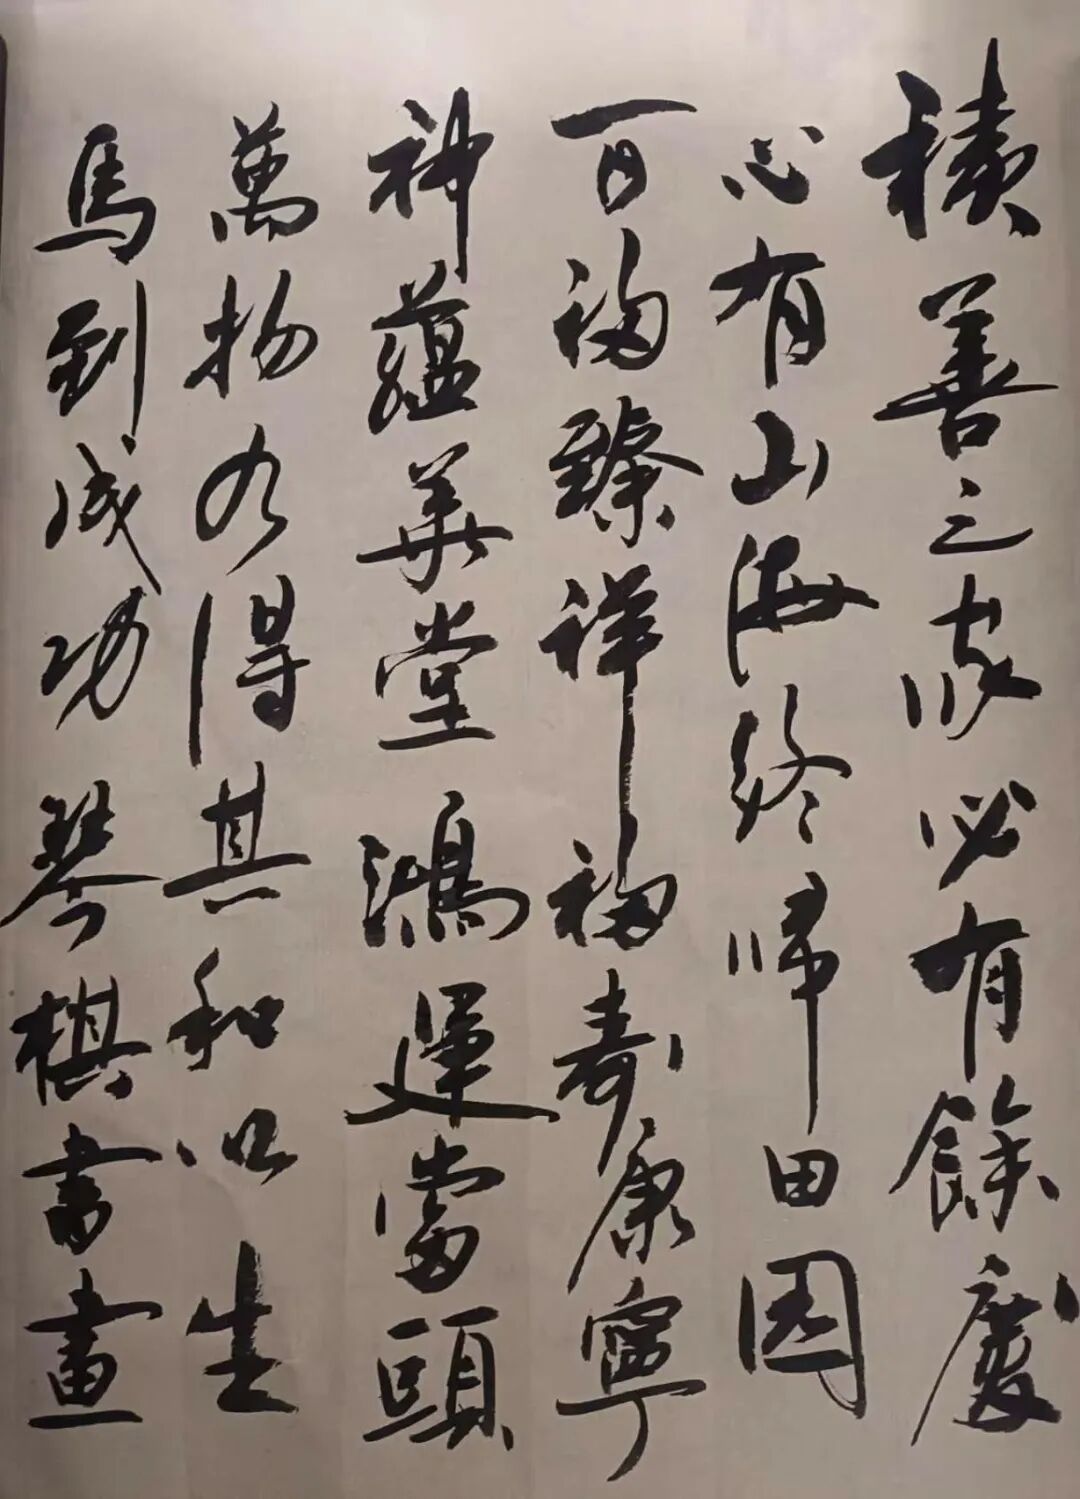 積善之家必有餘慶
心有山海終歸田園
百福臻祥福壽康寧
神蘊華堂鴻運當頭
萬物各得其和以生
馬到成功琴棋書畫